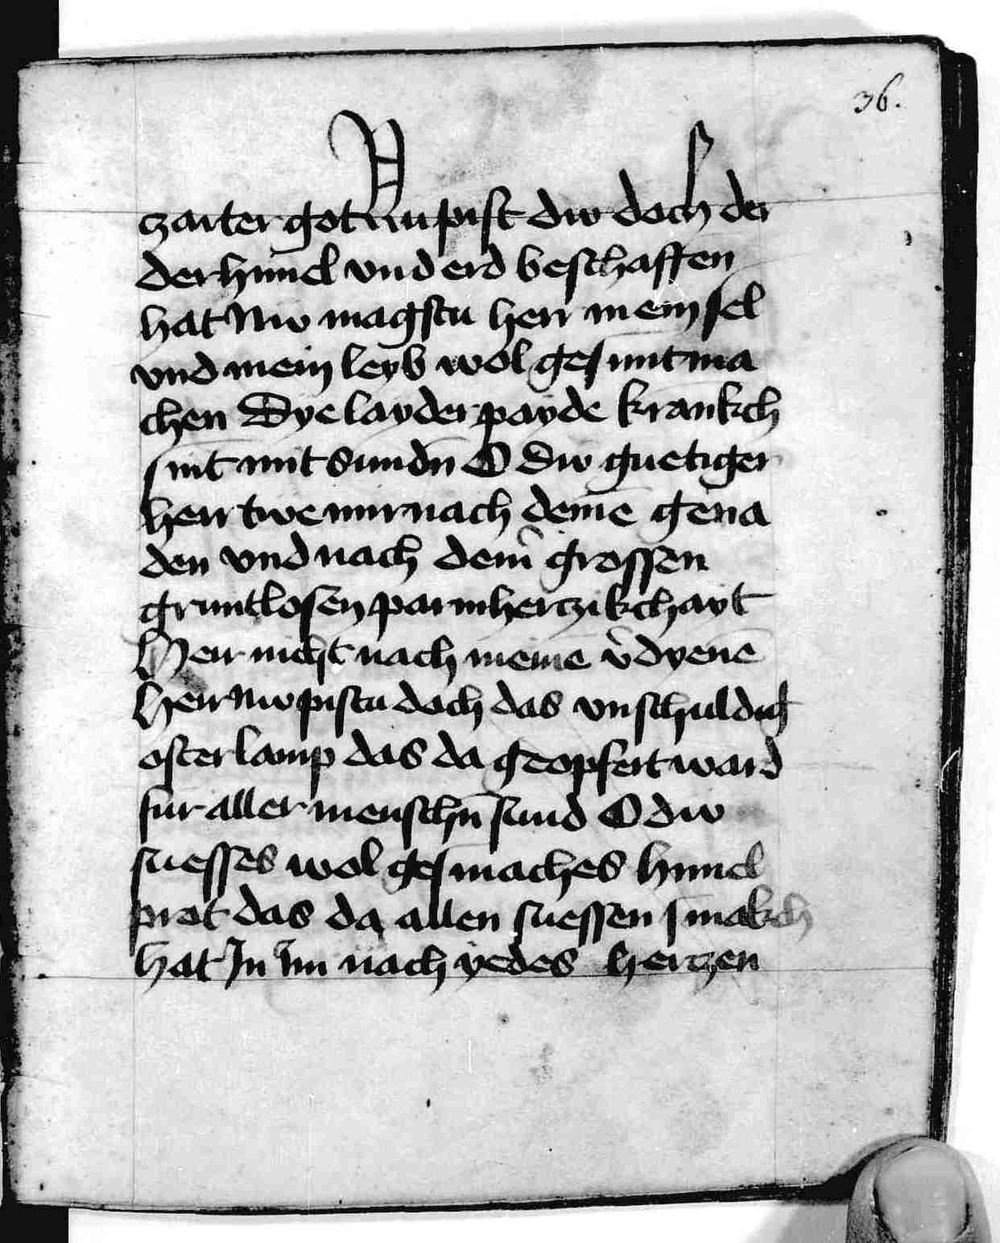 36.
zarter got Nu pist div doch der
der himel vnd erd beschaffen
hat Nw magstu herr mein sel
vnd mein leyb wol gesunt ma
chen Dye layder payde krankch
sint mit sundn O div guetiger
herr twe mir nach deine gena
den vnd nach deinr grossen
gruntlosen parmhertzikchayt
Herr nicht nach meine vdyene
Herr Nw pistu doch das vnschuldig
osterlamp das da geopfert ward
fur aller menschn sund O div
suesses wol gesmaches himel
prot das da allen suessen smakch
hat In im nach yedes hertzen